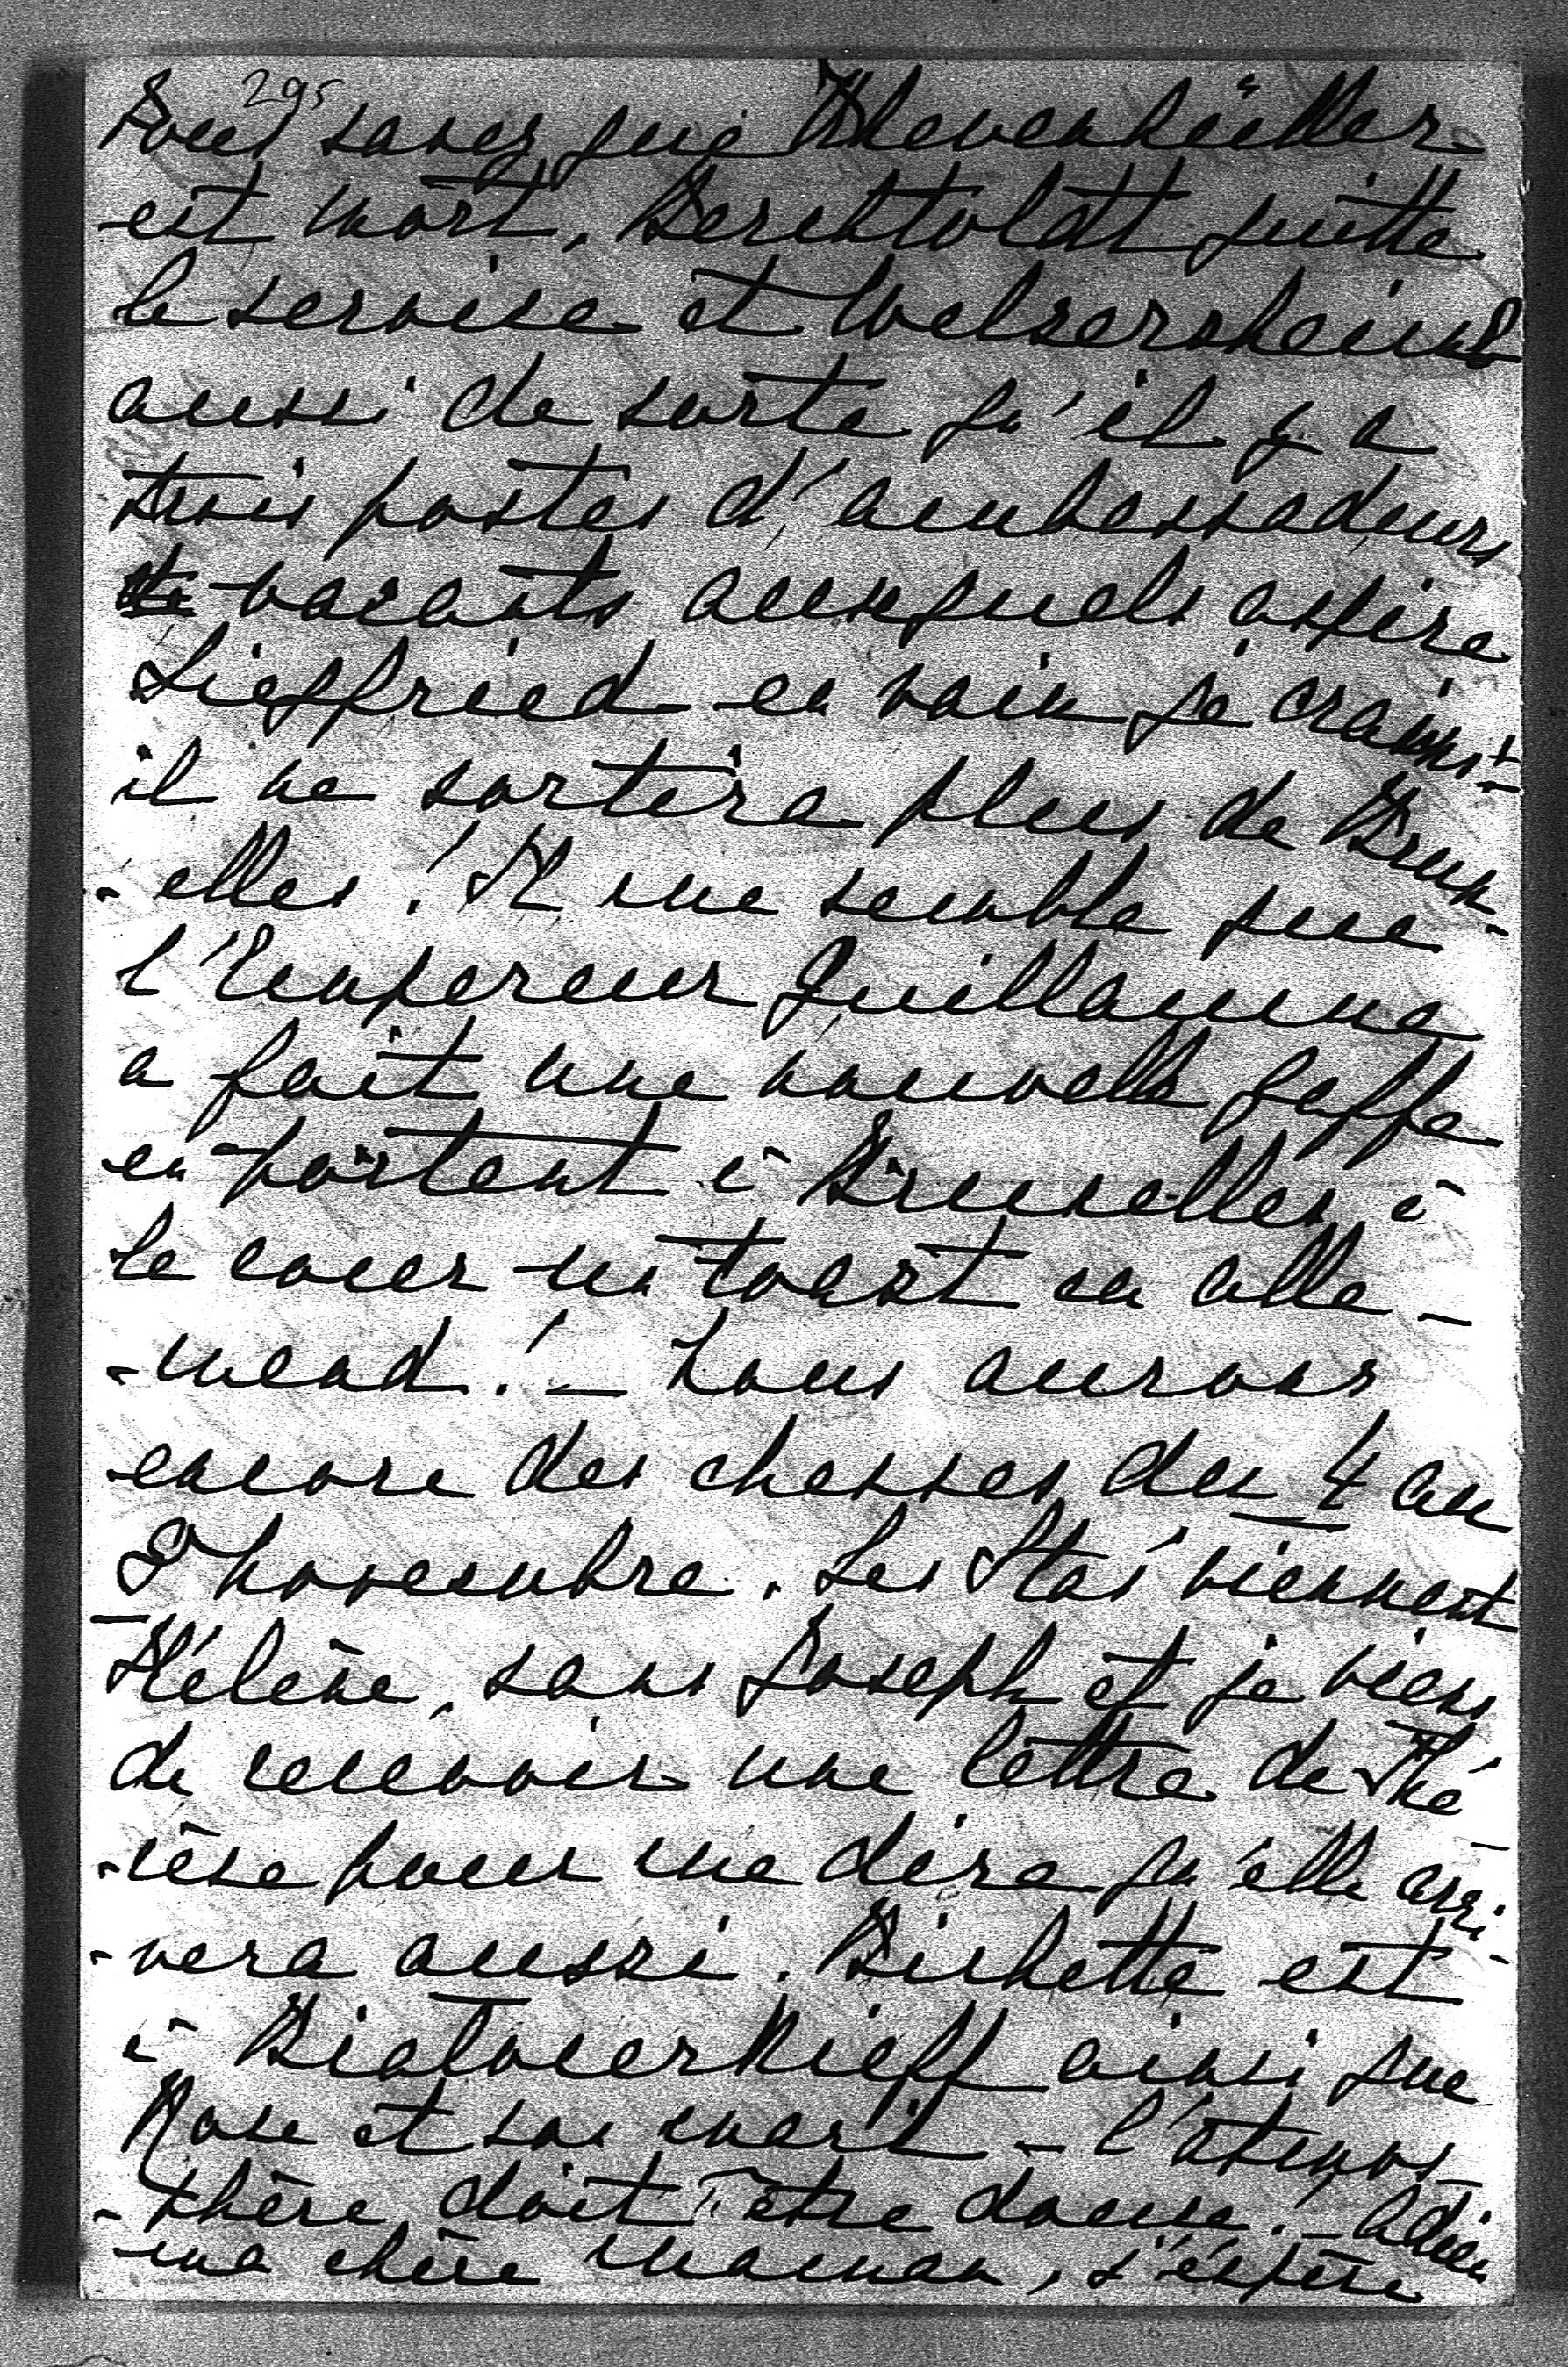 295
Vous savez que Khevenhüller
est mort, Berchtoldt quitte
le service et Welsersheimb
aussi de sorte qu'il y a
trois postes d'ambassadeurs
vacants auxquels aspire
Siegfried en vain je crains
il ne sortira plus de Brux-
-elles! Il me semble que
l'Empereur Guillaume
a fait une nouvelle gaffe
en portant à Bruxelles à
la cour un toast en alle-
-mand! — Nous aurons
encore des chasses du 4 au
8 novembre. Les Staś viennent
Hélène, sans Joseph et je viens
de recevoir une lettre de Thé-
-rèse pour me dire qu'elle arri-
-vera aussi. Bichette est
à Biatocerkieff ainsi que
Rose et son mari — l'atmos-
-phère doit être douce! — Adieu
ma chère maman, j'éspère